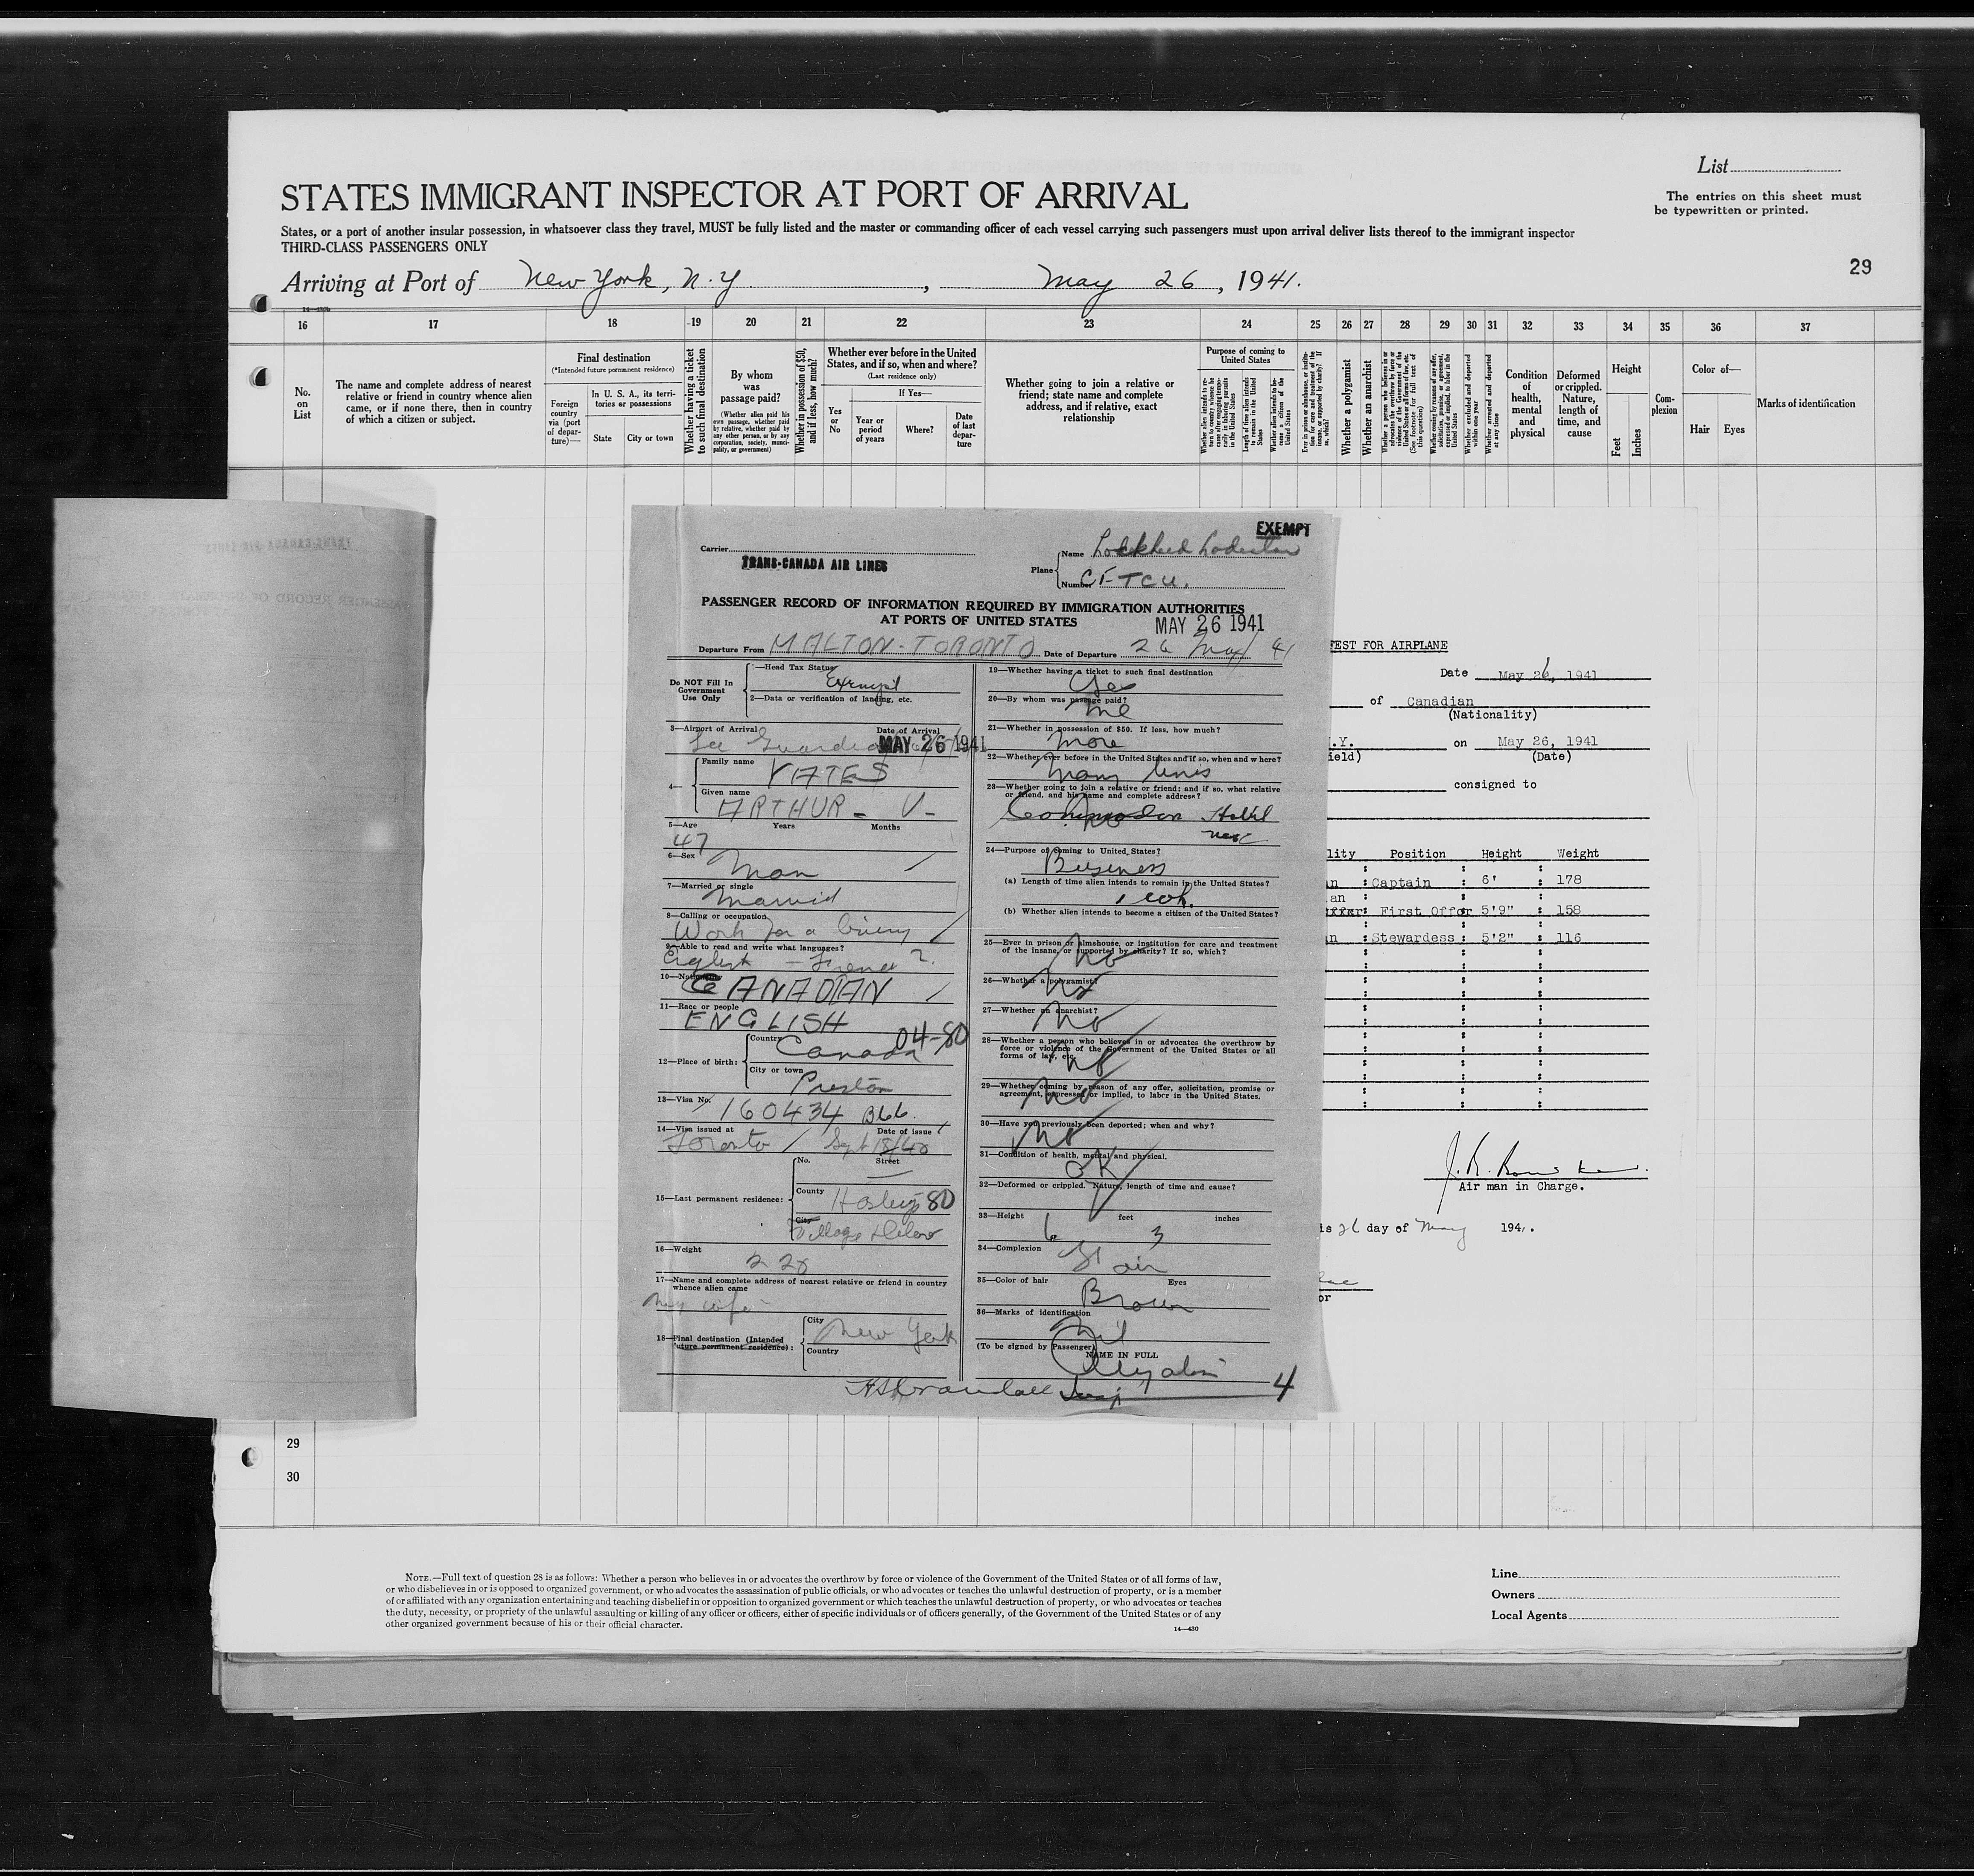 List
STATES IMMIGRANT INSPECTOR AT PORT OF ARRIVAL
The entries on this sheet must
be typewritten or printed.
States, or a port of another insular possession, in whatsoever class they travel, MUST be fully listed and the master or commanding officer of each vessel carrying such passengers must upon arrival deliver lists thereof to the immigrant inspector
THIRD-CLASS PASSENGERS ONLY
29
Arriving at Port of New York, N.Y , May 26, 1941.
16 17 18 19 20 21 22 23 24 25 26 27 28 29 30 31 32 33 34 35 36 37
No. on List
The name and complete address of nearest relative or friend in country whence alien came, or if none there, then in country of which a citizen or subject.
Final destination
(*Intended future permanent residence)
Foreign country via (port of departure)—
In U. S. A., its territories or possessions
State
City or town
Whether having a ticket to such final destination
By whom was passage paid?
(Whether alien paid his own passage, whether paid by relative, whether paid by any other person, or by any corporation, society, municipality, or government)
Whether in possession of $50, and if less, how much?
Whether ever before in the United States, and if so, when and where?
(Last residence only)
Yes or No
If Yes—
Year or period of years
Where?
Date of last departure
Whether going to join a relative or friend; state name and complete address, and if relative, exact relationship
Purpose of coming to United States
Whether a polygamist
Whether an anarchist
Whether excluded and deported within one year
Whether arrested and deported at any time
Condition of health, mental and physical
Deformed or crippled. Nature, length of time, and cause
Height
Feet
Inches
Complexion
Color of—
Hair
Eyes
Marks of identification
EXEMPT
Carrier
TRANS-CANADA AIR LINES
Plane
Name Lockheed Lodestar
Number CF-TCU.
PASSENGER RECORD OF INFORMATION REQUIRED BY IMMIGRATION AUTHORITIES
AT PORTS OF UNITED STATES
MAY 26 1941
Departure From MALTON - TORONTO Date of Departure 26 May 41
Do NOT Fill In Government Use Only
1—Head Tax Status
Exempt
2—Data or verification of landing, etc.
3—Airport of Arrival
Date of Arrival
MAY 26 1941
4—
Family name YATES
Given name ARTHUR - V-
5—Age Years Months
47
6—Sex Man
7—Married or single
Married
8—Calling or occupation
Work for a living
9—Able to read and write what languages?
English - French ?
10—Nationality
CANADIAN
11—Race or people
ENGLISH
04-80
12—Place of birth:
Country Canada
City or town
Preston
13—Visa No. 160434
14—Visa issued at Date of issue
Toronto / Sept 18/40
15—Last permanent residence:
No. Street
County 80
City
Village
16—Weight
220
17—Name and complete address of nearest relative or friend in country whence alien came
my wife
18—Final destination (Intended future permanent residence):
City New York
Country
19—Whether having a ticket to such final destination
Yes
20—By whom was passage paid?
me
21—Whether in possession of $50. If less, how much?
more
22—Whether ever before in the United States and if so, when and where?
many times
23—Whether going to join a relative or friend; and if so, what relative or friend, and his name and complete address?
no
Commodore Hotel
24—Purpose of coming to United States?
Business
(a) Length of time alien intends to remain in the United States?
1 wk.
(b) Whether alien intends to become a citizen of the United States?
25—Ever in prison or almshouse, or institution for care and treatment of the insane, or supported by charity? If so, which?
No
26—Whether a polygamist?
No
27—Whether an anarchist?
No
28—Whether a person who believes in or advocates the overthrow by force or violence of the Government of the United States or all forms of law, etc.
No
29—Whether coming by reason of any offer, solicitation, promise or agreement, expressed or implied, to labor in the United States.
No
30—Have you previously been deported; when and why?
No
31—Condition of health, mental and physical.
OK
32—Deformed or crippled. Nature, length of time and cause?
33—Height feet inches
6 3
34—Complexion
Fair
35—Color of hair Eyes
Brown
36—Marks of identification
Nil
(To be signed by Passenger)
NAME IN FULL
4
FEST FOR AIRPLANE
Date May 26, 1941
of Canadian
(Nationality)
.Y. on May 26, 1941
ield) (Date)
consigned to
lity Position Height Weight
n : Captain : 6' : 178
an
First Offcr 5'9" : 158
n : Stewardess : 5'2" : 116
Air man in Charge.
is 26 day of May 194 .
or
29
30
NOTE.—Full text of question 28 is as follows: Whether a person who believes in or advocates the overthrow by force or violence of the Government of the United States or of all forms of law,
or who disbelieves in or is opposed to organized government, or who advocates the assassination of public officials, or who advocates or teaches the unlawful destruction of property, or is a member
of or affiliated with any organization entertaining and teaching disbelief in or opposition to organized government or which teaches the unlawful destruction of property, or who advocates or teaches
the duty, necessity, or propriety of the unlawful assaulting or killing of any officer or officers, either of specific individuals or of officers generally, of the Government of the United States or of any
other organized government because of his or their official character.
14—430
Line
Owners
Local Agents